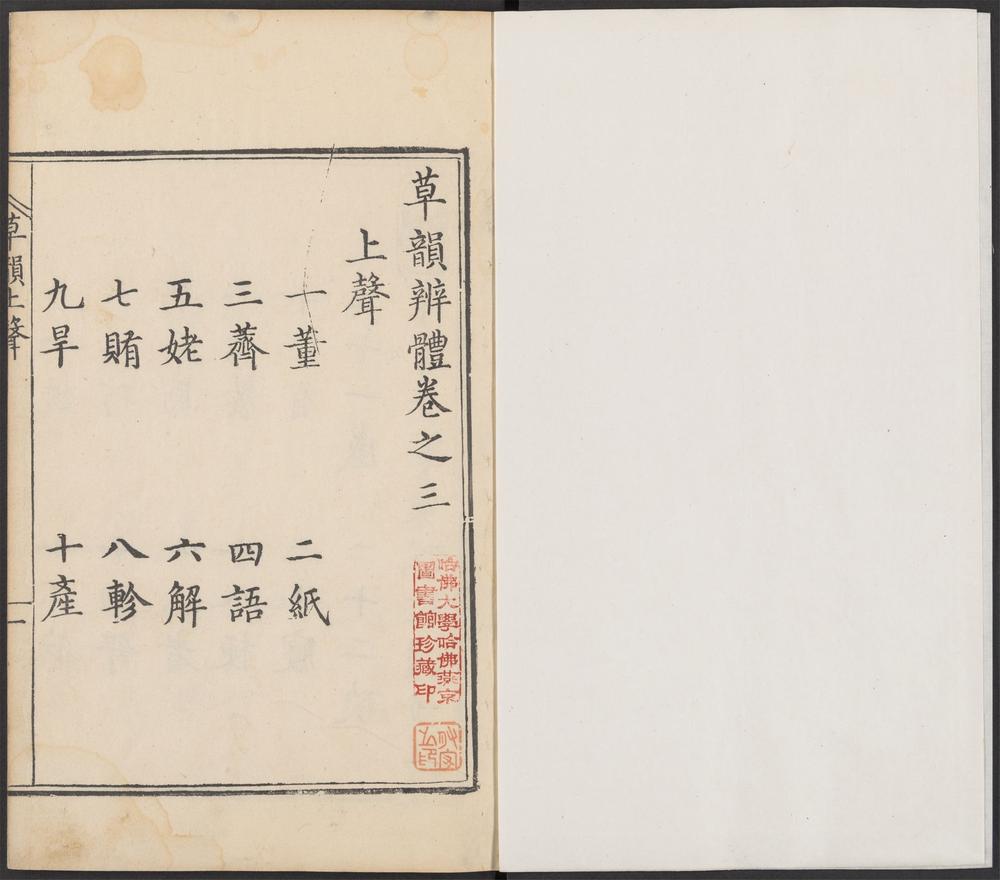 草韻辨體卷之三
上聲
一董 二紙
三薺 四語
五姥 六解
七賄 八軫
九旱 十產
草韻上聲 一
哈佛大學哈佛燕京
圖書館珍藏印